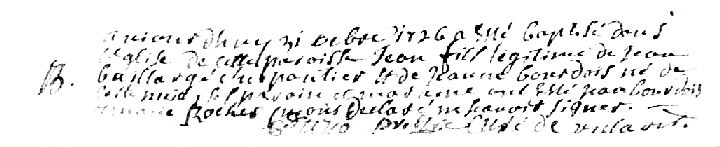 aujourdhuy 31 octbre 1726 a esté baptisé dans
l'eglise de cette paroisse Jean fils legitime de Jean
B. baillargé charpantier et de Jeanne bourdois né de
cette nuit, ses parain et maraine ont esté jean bourdois
Roches qui ont declaré ne scavoir signer.
prestre curé de